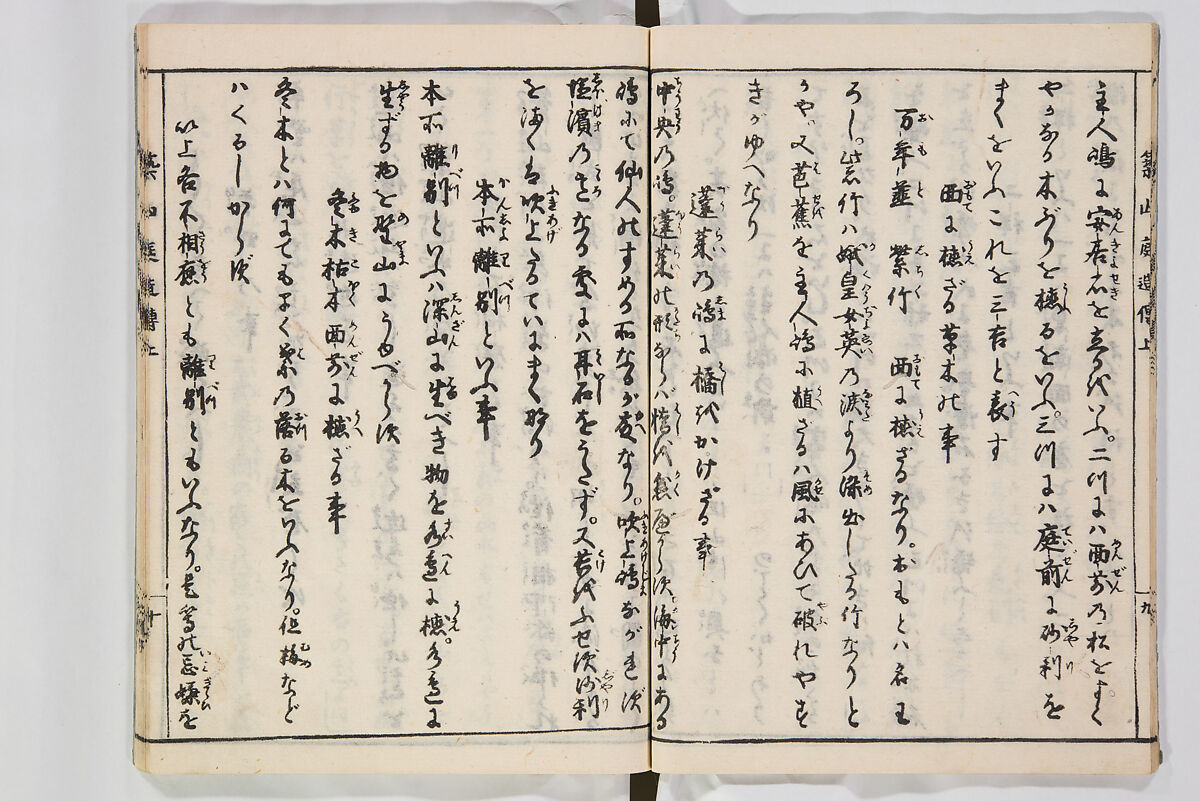 築山庭造傳上
九
主人嶋に安居石を立るをいふ。二川には面前の松をすく
やかなる木ぶりを植るをいふ。三川には庭前に砂利を
まくをいふこれを三吉と表す
面に植ざる草木の事
万年薤 紫竹 面に植ざるなり。おもとは名を
ろし。紫竹は娥皇女英の涙より染出したる竹なりと
かや。又芭蕉を主人嶋に植ざるは風にあひて破れやす
きがゆへなり
蓬莱の嶋に橋をかけざる事
中央の嶋。蓬莱の形ならば橋を懸べからず海中にある
嶋にて仙人のすめる所なるが故なり。吹上嶋ながれず
塩濱のきなる処には丹石をうたず。又苔をふせず砂利
をまくは吹上たるていにまく也
本所離別といふ事
本所離別といふは深山に生べき物を水邉に植。水邉に
生ずる物を野山にうゆべからず
冬木枯木面前に植ざる事
冬木とは何にてもよく葉の落る木をいふなり。但梅など
はくるしからず
以上各不相應とも離別ともいふなり。是等の忌嫌を
築山庭造傳上
十